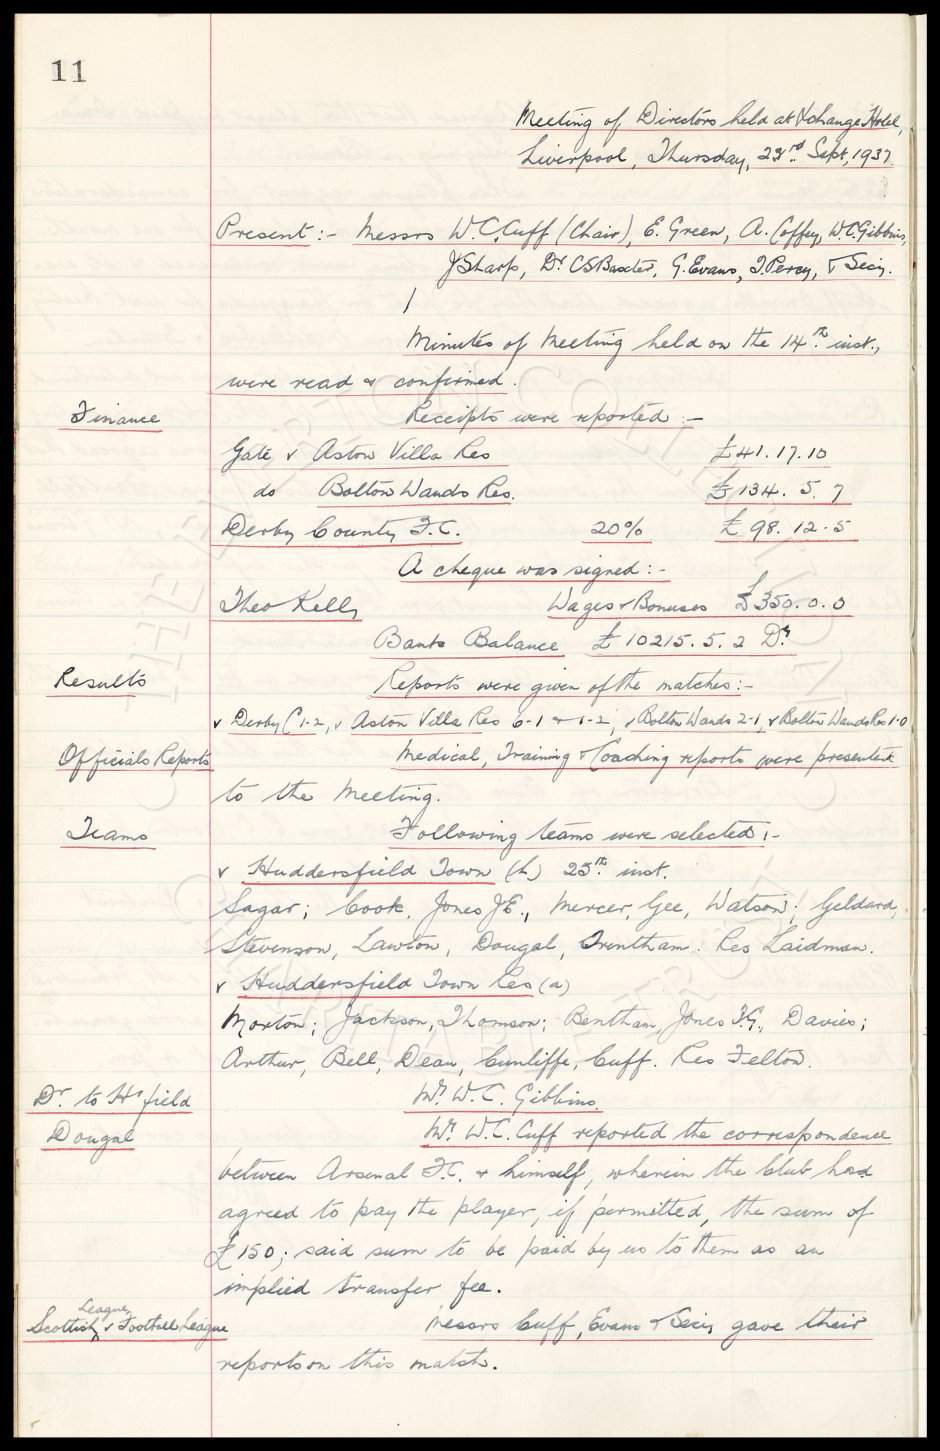 11
Meeting of Directors held at Xchange Hotel,
Liverpool, Thursday, 23rd Sept, 1937.
Present :- Messrs W.C. Cuff (Chair), E. Green, A. Coffey, W.C. Gibbins,
J Sharp, Dr. C S Baxter, G. Evans, T. Percy, & Secy.
Minutes of Meeting held on the 14th inst.,
were read & confirmed.
Finance Receipts were reported :-
Gate v Aston Villa Res £41. 17. 10
do Bolton Wands Res. £134. 5. 7
Derby County F.C. 20% £98. 12. 5
A cheque was signed :-
Theo Kelly Wages & Bonuses £350. 0. 0
Bank Balance £10215. 5. 2 Dr
Results Reports were given of the matches :-
v Derby C 1-2, v Aston Villa Res 6-1 & 1-2, v Bolton Wands 2-1, v Bolton Wands Res 1-0
Officials Reports Medical, Training & Coaching reports were presented
to the Meeting.
Teams Following teams were selected :-
v Huddersfield Town (h) 25th inst.
Sagar; Cook, Jones J E., Mercer, Gee, Watson; Geldard,
Stevenson, Lawton, Dougal, Trentham. Res Laidman.
v Huddersfield Town Res (a)
Morton; Jackson, Thomson; Bentham, Jones T.G., Davies;
Arthur, Bell, Dean, Cunliffe, Cuff. Res Felton.
Dr. to H'field Mr. W.C. Gibbins.
Dougal Mr. W.C. Cuff reported the correspondence
between Arsenal F.C. & himself, wherein the Club had
agreed to pay the player, if permitted, the sum of
£150; said sum to be paid by us to them as an
implied transfer fee.
Scottish League v Football League Messrs Cuff, Evans & Secy gave their
reports on this match.
THE EVERTON COLLECTION
CHARITABLE TRUST